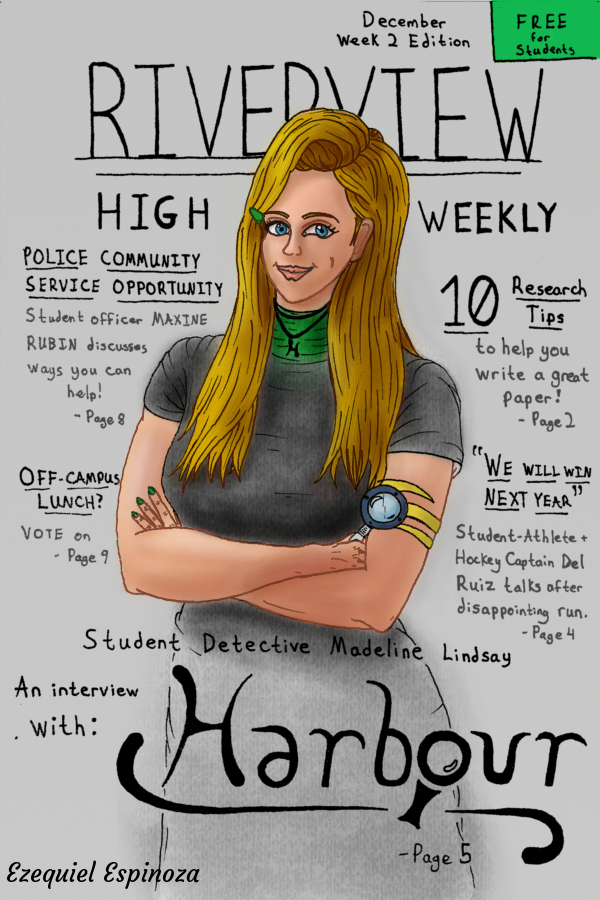 December
Week 2 Edition
FREE
for
Students
RIVERVIEW
HIGH WEEKLY
POLICE COMMUNITY
SERVICE OPPORTUNITY
Student officer MAXINE
RUBIN discusses
ways you can
help!
- Page 8
10 Research
Tips
to help you
write a great
paper!
- Page 2
OFF-CAMPUS
LUNCH?
VOTE on
- Page 9
"WE WILL WIN
NEXT YEAR"
Student-Athlete +
Hockey Captain Del
Ruiz talks after
disappointing run.
- Page 4
H
Student Detective Madeline Lindsay
An interview
with:
Harbour
- Page 5
Ezequiel Espinoza